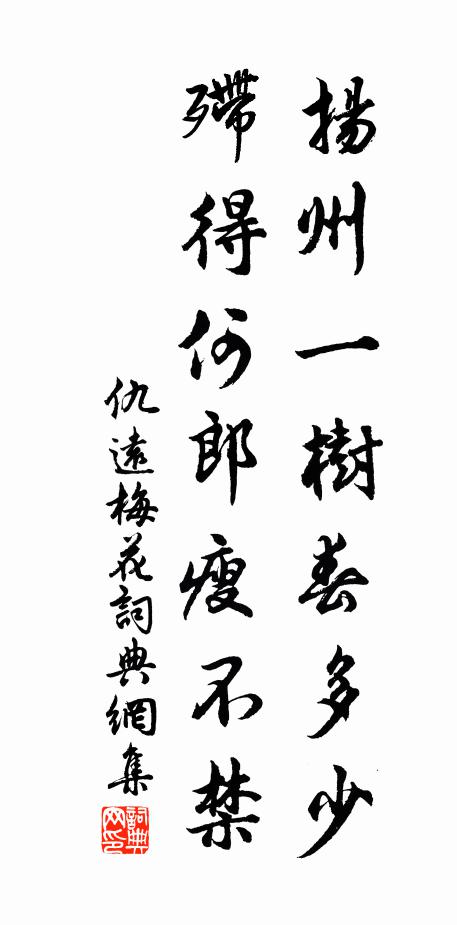 揚州一樹春多少
殢得何郎瘦不禁
仇遠梅花詞典網集
詞典網印